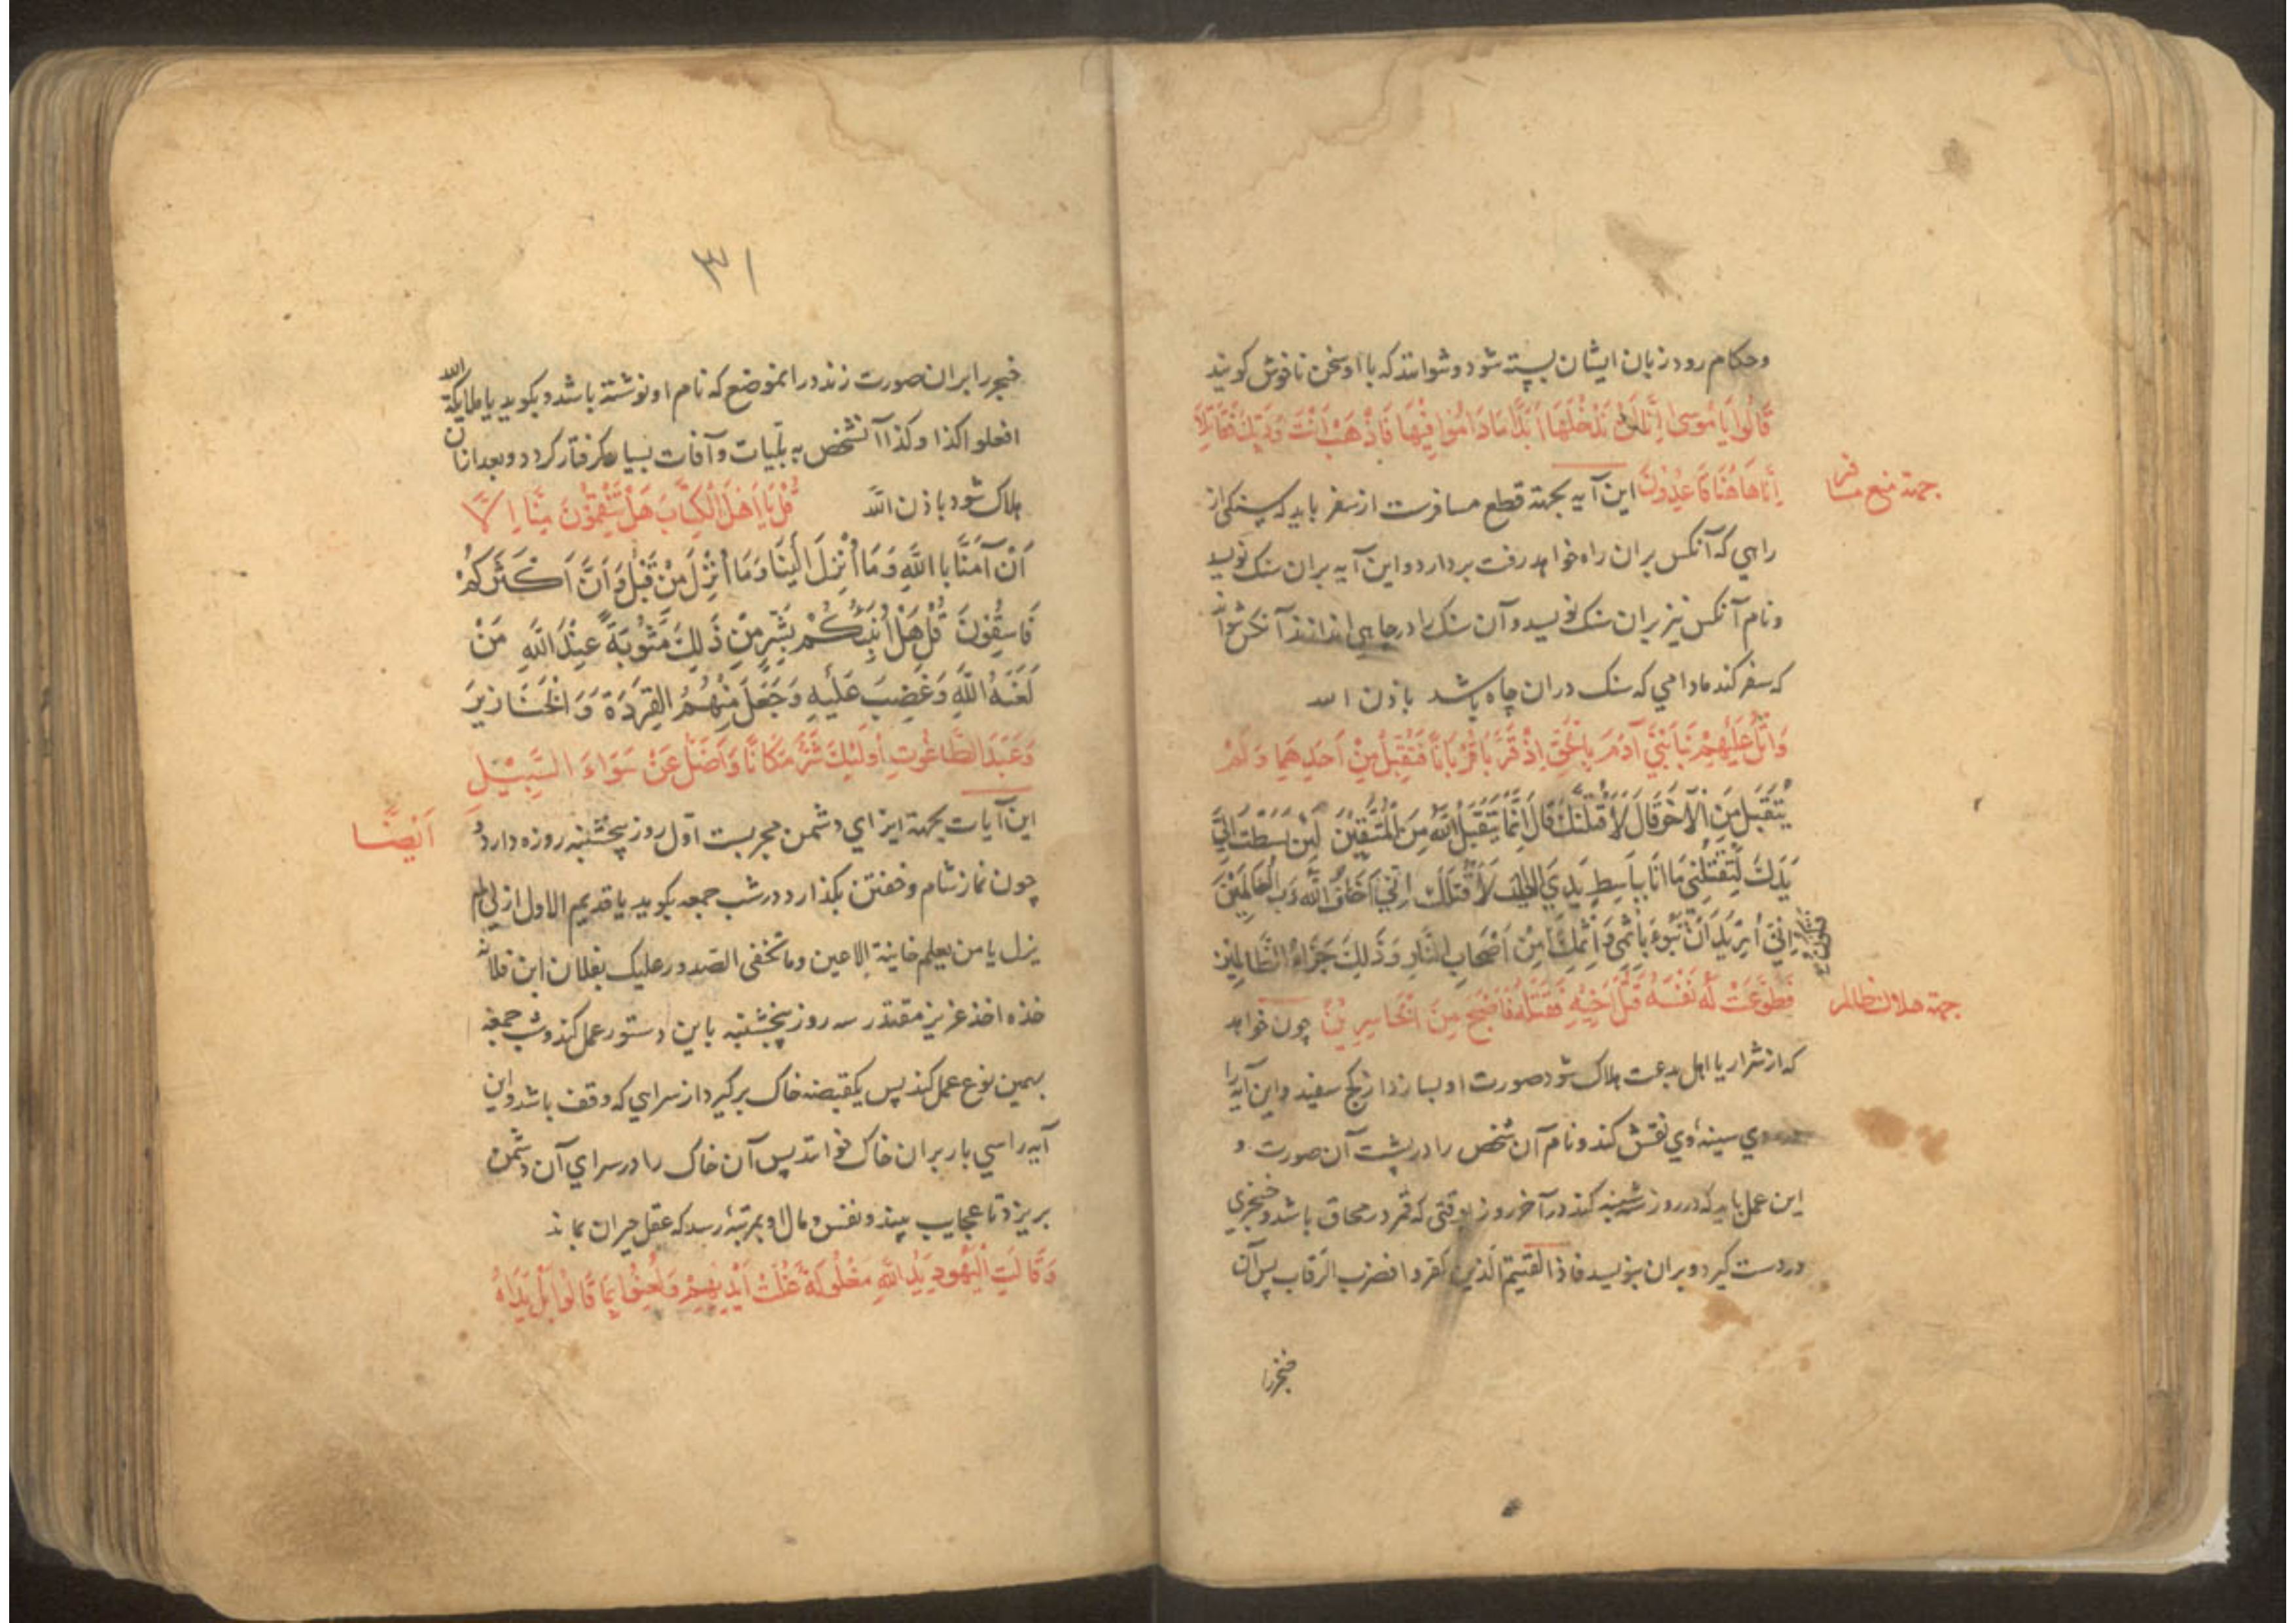 وحکام رود زبان ایشان بسته شود و نتوانند که با او سخن ناخوش کویند
قَالُوا يَا مُوسَى إِنَّا لَنْ نَدْخُلَهَا أَبَدًا مَا دَامُوا فِيهَا فَاذْهَبْ أَنْتَ وَرَبُّكَ فَقَاتِلَا
جهة منع مسافر
إِنَّا هَاهُنَا قَاعِدُونَ این آیه بجهة قطع مسافرت از سفر باید که سنکی از
راهی که آنکس بران راه خواهد رفت بردارد و این آیه بران سنک نویسد
ونام آنکس نیز بران سنک نویسد و آن سنک را در چاهی اندازند آنکس نتواند
که سفر کند مادامی که سنک دران چاه باشد باذن الله
وَاتْلُ عَلَيْهِمْ نَبَأَ ابْنَيْ آدَمَ بِالْحَقِّ إِذْ قَرَّبَا قُرْبَانًا فَتُقُبِّلَ مِنْ أَحَدِهِمَا وَلَمْ
يُتَقَبَّلْ مِنَ الْآخَرِ قَالَ لَأَقْتُلَنَّكَ قَالَ إِنَّمَا يَتَقَبَّلُ اللَّهُ مِنَ الْمُتَّقِينَ لَئِنْ بَسَطْتَ إِلَيَّ
يَدَكَ لِتَقْتُلَنِي مَا أَنَا بِبَاسِطٍ يَدِيَ إِلَيْكَ لَأَقْتُلَكَ إِنِّي أَخَافُ اللَّهَ رَبَّ الْعَالَمِينَ
إِنِّي أُرِيدُ أَنْ تَبُوءَ بِإِثْمِي وَإِثْمِكَ مِنْ أَصْحَابِ النَّارِ وَذَلِكَ جَزَاءُ الظَّالِمِينَ
جهة هلاک ظالم
فَطَوَّعَتْ لَهُ نَفْسُهُ قَتْلَ أَخِيهِ فَقَتَلَهُ فَأَصْبَحَ مِنَ الْخَاسِرِينَ چون خواهد
که از شرار یا اهل بدعت هلاک شود صورت او بسازد از کج سفید و این آیه را
وی سینۀ وی نقش کند و نام آن شخص را در پشت آن صورت و
این عمل باید که در روز شنبه کند در آخر روز بوقتی که قمر در محاق باشد و خنجری
در دست کیرد و بران بنویسد فاذا لقیتم الذین کفروا فضرب الرقاب پس آن
خنجر را
٣١
خنجر را بران صورت زند در انموضع که نام او نوشته باشد و بکوید یا ملایکة الله
افعلوا کذا وکذا آنشخص به بلیات و آفات بسیار کرفتار کردد و بعد ازان
هلاک شود باذن الله قُلْ يَا أَهْلَ الْكِتَابِ هَلْ تَنْقِمُونَ مِنَّا إِلَّا
أَنْ آمَنَّا بِاللَّهِ وَمَا أُنْزِلَ إِلَيْنَا وَمَا أُنْزِلَ مِنْ قَبْلُ وَأَنَّ أَكْثَرَكُمْ
فَاسِقُونَ قُلْ هَلْ أُنَبِّئُكُمْ بِشَرٍّ مِنْ ذَلِكَ مَثُوبَةً عِنْدَ اللَّهِ مَنْ
لَعَنَهُ اللَّهُ وَغَضِبَ عَلَيْهِ وَجَعَلَ مِنْهُمُ الْقِرَدَةَ وَالْخَنَازِيرَ
وَعَبَدَ الطَّاغُوتَ أُولَئِكَ شَرٌّ مَكَانًا وَأَضَلُّ عَنْ سَوَاءِ السَّبِيلِ
این آیات بجهة ایزای دشمن مجربست اول روز پنجشنبه روزه دارد و
أَيْضًا
چون نماز شام و خفتن بکذارد در شب جمعه بکوید یا قدیم الاول ازلی لم
یزل یا من یعلم خاینة الاعین وما تخفی الصدور علیک بفلان ابن فلانه
خذه اخذ عزیز مقتدر سه روز پنجشنبه باین دستور عمل کند و شب جمعه
بهمین نوع عمل کند پس یکقبضه خاک برکیرد از سرای که وقف باشد و این
آیه را سی بار بران خاک خواند پس آن خاک را در سرای آن دشمن
بریزد تا عجایب بیند و نفس و مال او بمرتبۀ رسد که عقل حیران بماند
وَقَالَتِ الْيَهُودُ يَدُ اللَّهِ مَغْلُولَةٌ غُلَّتْ أَيْدِيهِمْ وَلُعِنُوا بِمَا قَالُوا بَلْ يَدَاهُ